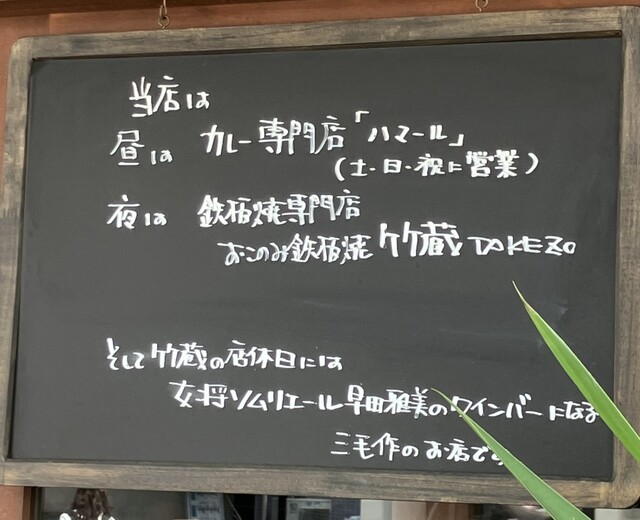 当店は
昼は カレー専門店「ハマール」
(土・日・祝に営業)
夜は 鉄板焼専門店
おこのみ鉄板焼 竹蔵 TAKEZO
そして竹蔵の店休日には
女将ソムリエール早田雅美のワインバーになる
三毛作のお店です